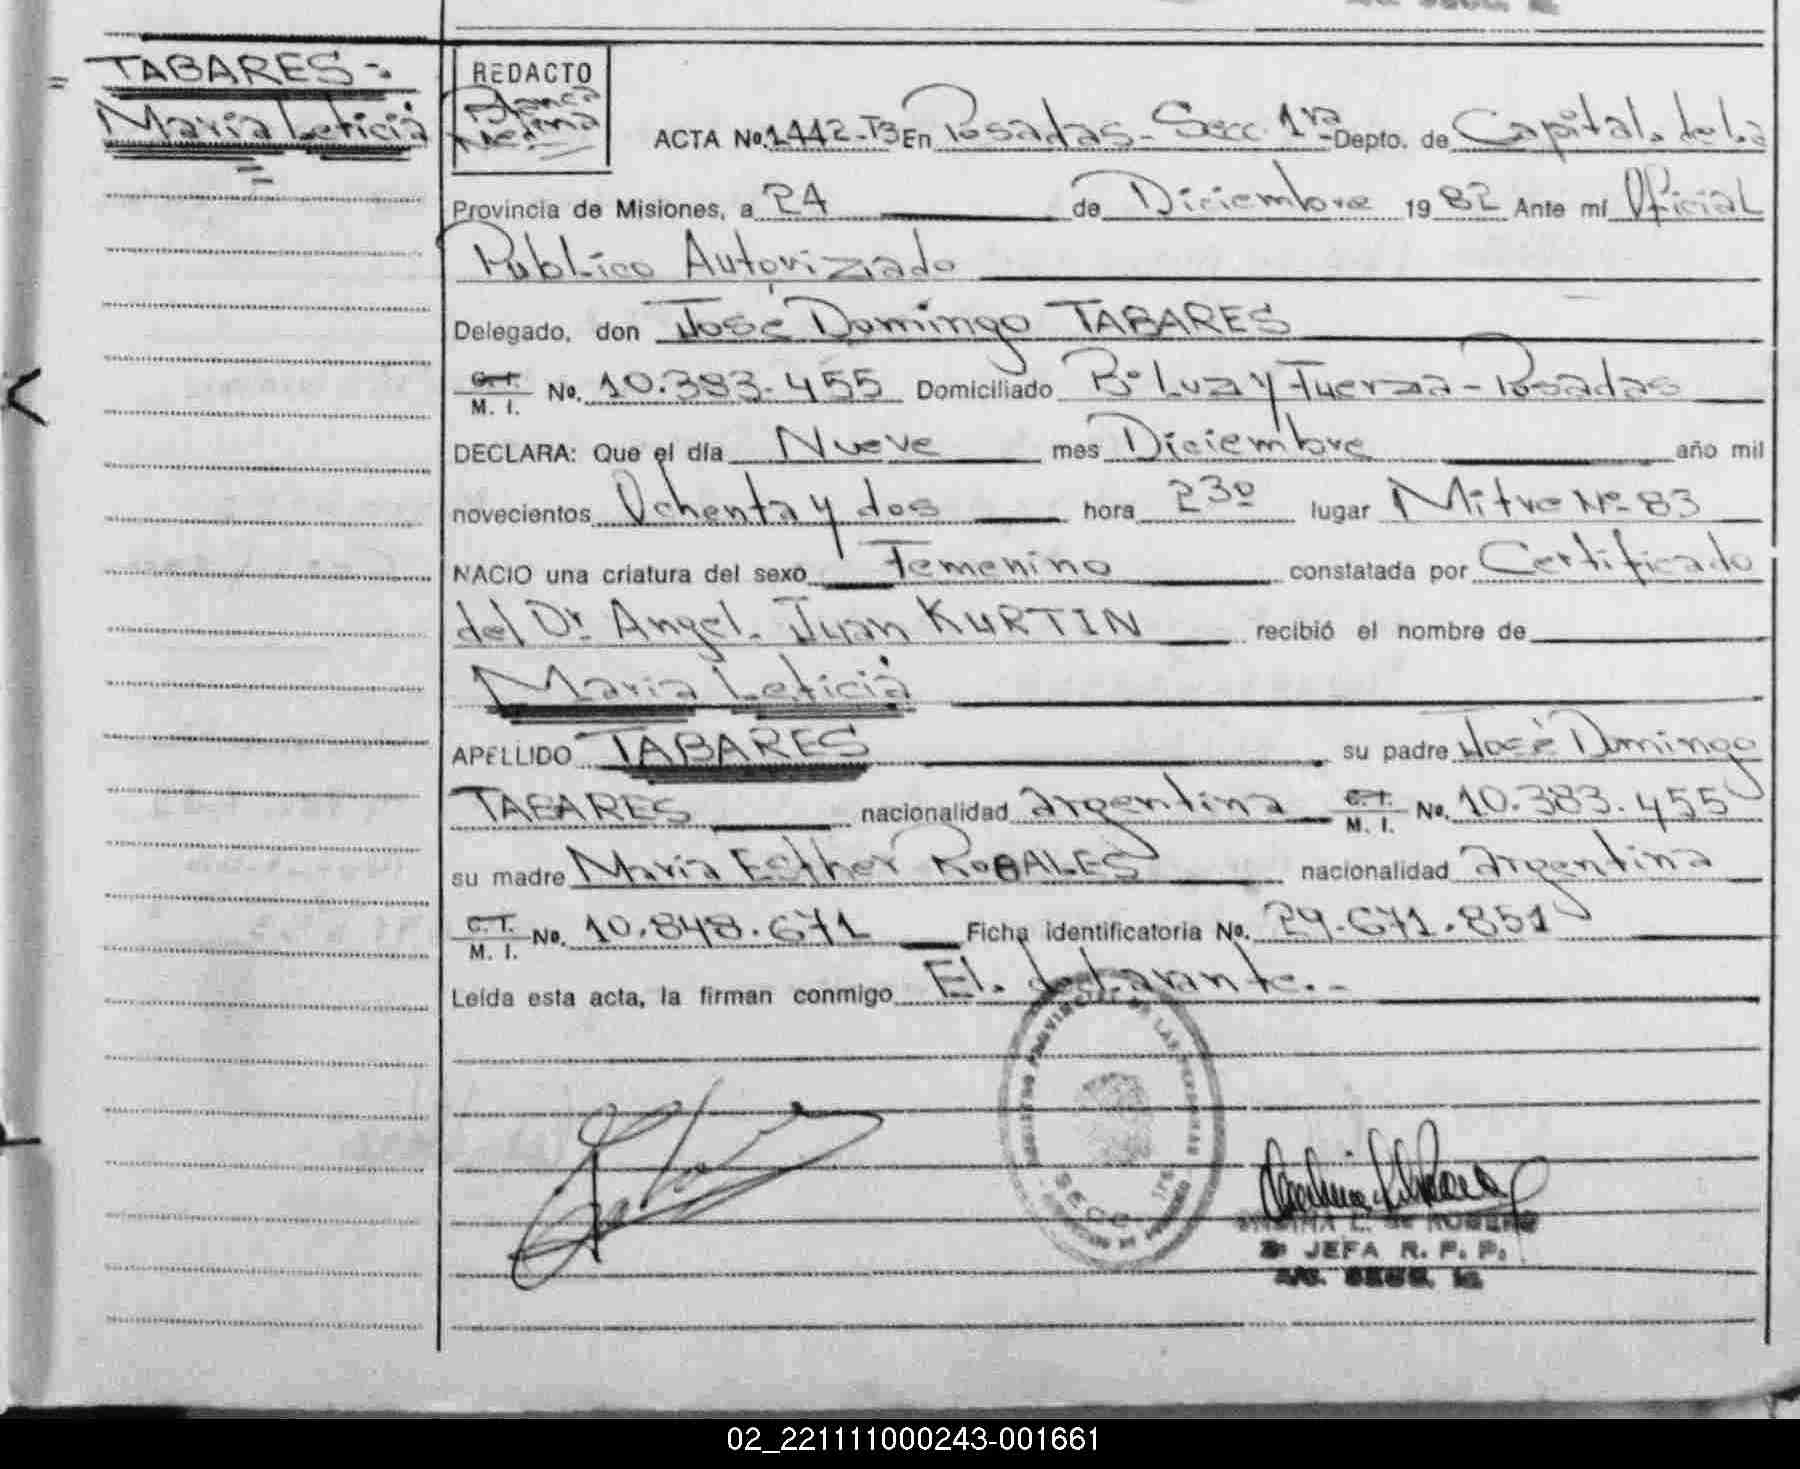 TABARES =
Maria Leticia
REDACTO
Blanca
Medina
ACTA No. 1442-T3 En Posadas - Secc. 1ra - Depto. de Capital. de la
Provincia de Misiones, a 24 de Diciembre 1982 Ante mí Oficial
Público Autorizado
Delegado, don José Domingo TABARES
C.I. M. I. No. 10.383.455 Domiciliado Bº Luz y Fuerza - Posadas
DECLARA: Que el día Nueve mes Diciembre año mil
novecientos Ochenta y dos hora 23º lugar Mitre Nº 83
NACIO una criatura del sexo Femenino constatada por Certificado
del Dr. Angel. Juan KURTIN recibió el nombre de
Maria Leticia
APELLIDO TABARES su padre José Domingo
TABARES nacionalidad argentina C.I. M. I. No. 10.383.455
su madre María Esther ROBALES nacionalidad argentina
C.I. M. I. No. 10.848.671 Ficha identificatoria No. 29.671.851
Leída esta acta, la firman conmigo El. declarante. -
REGISTRO PROVINCIAL DE LAS PERSONAS
SECC.
L. de ROMERO
JEFA R. P. P.
02_221111000243-001661